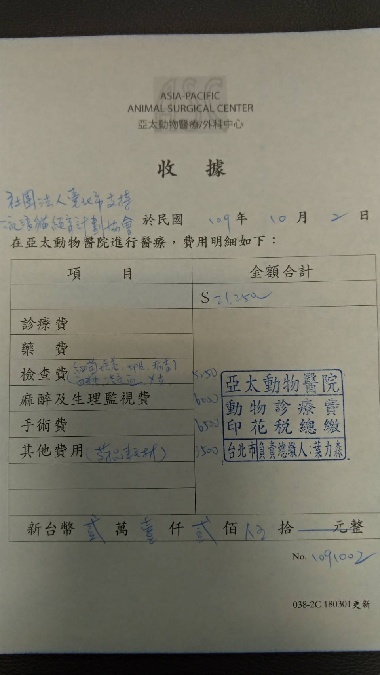 ASC
ASIA-PACIFIC
ANIMAL SURGICAL CENTER
亞太動物醫療/外科中心
收 據
社團法人臺北市支持
流浪貓絕育計劃協會 於民國 109 年 10 月 2 日
在亞太動物醫院進行醫療，費用明細如下：
項 目 金額合計
$ 21,250
診療費
藥 費
檢查費
麻醉及生理監視費
手術費 6500
其他費用
亞太動物醫院
動物診療費
印花稅總繳
台北市負責總繳人：葉力森
新台幣 貳 萬 壹 仟 貳 佰 伍 拾 元整
No. 1091002
038-2C 180301更新